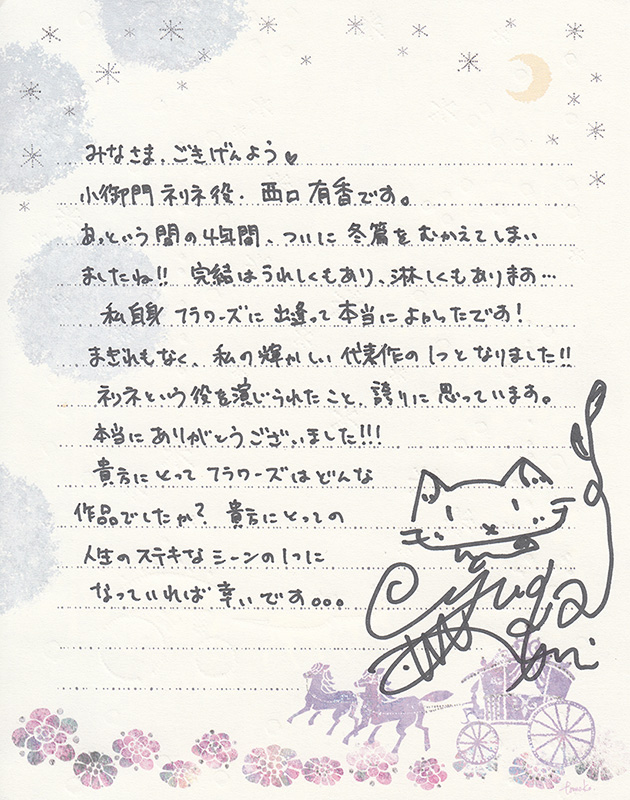 みなさま、ごきげんよう♥
小御門ネリネ役、西口有香です。
あっという間の4年間、ついに冬篇をむかえてしまい
ましたね!! 完結はうれしくもあり、淋しくもあります…
私自身フラワーズに出逢って本当によかったです!
まぎれもなく、私の輝かしい代表作の1つとなりました!!
ネリネという役を演じられたこと、誇りに思っています。
本当にありがとうございました!!!
貴方にとってフラワーズはどんな
作品でしたか? 貴方にとっての
人生のステキなシーンの1つに
なっていれば幸いです。。。